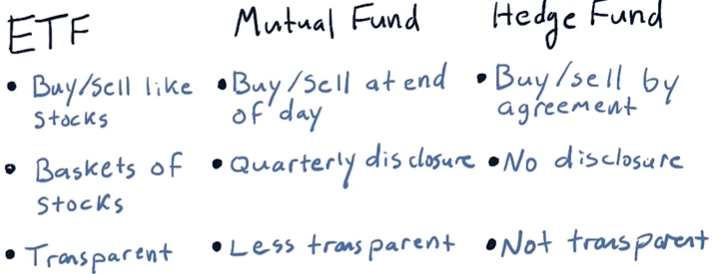 ETF
• Buy/Sell like
stocks
• Baskets of
stocks
• Transparent
Mutual Fund
• Buy/Sell at end
of day
• Quarterly disclosure
• Less transparent
Hedge Fund
• Buy/sell by
agreement
• No disclosure
• Not transparent